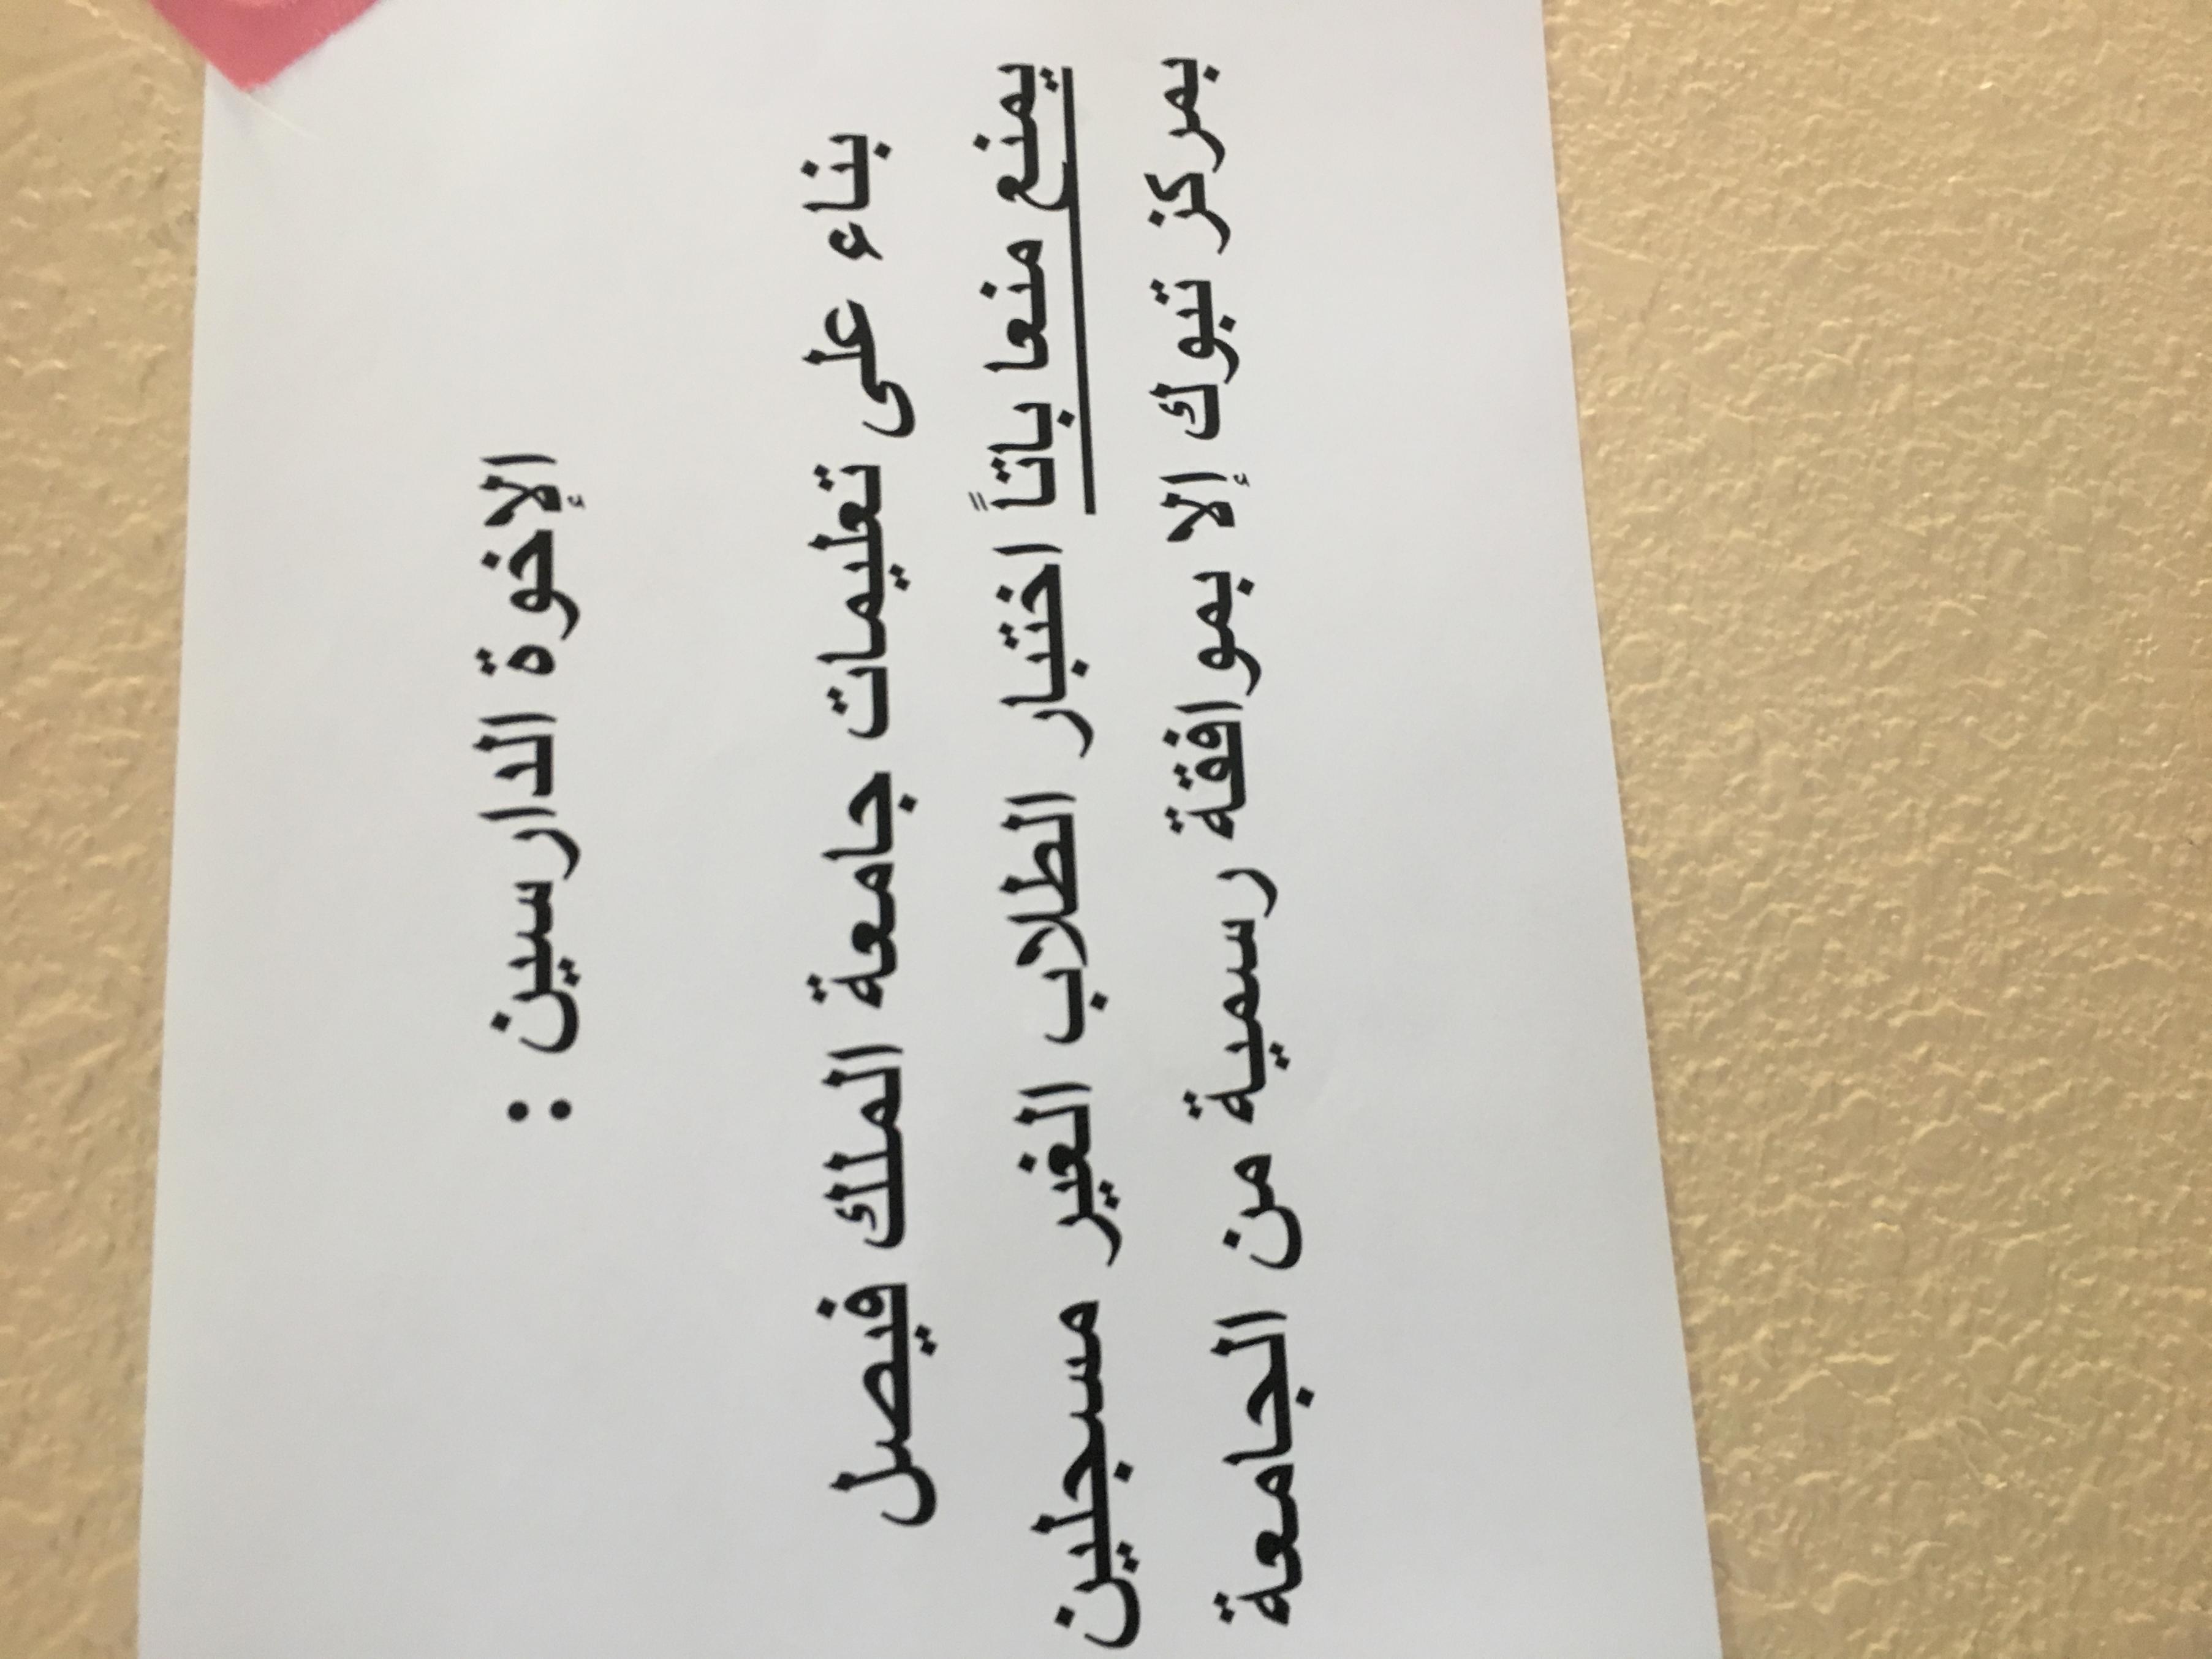 الإخوة الدارسين :
بناء على تعليمات جامعة الملك فيصل
يمنع منعا باتاً اختبار الطلاب الغير مسجلين
بمركز تبوك إلا بموافقة رسمية من الجامعة